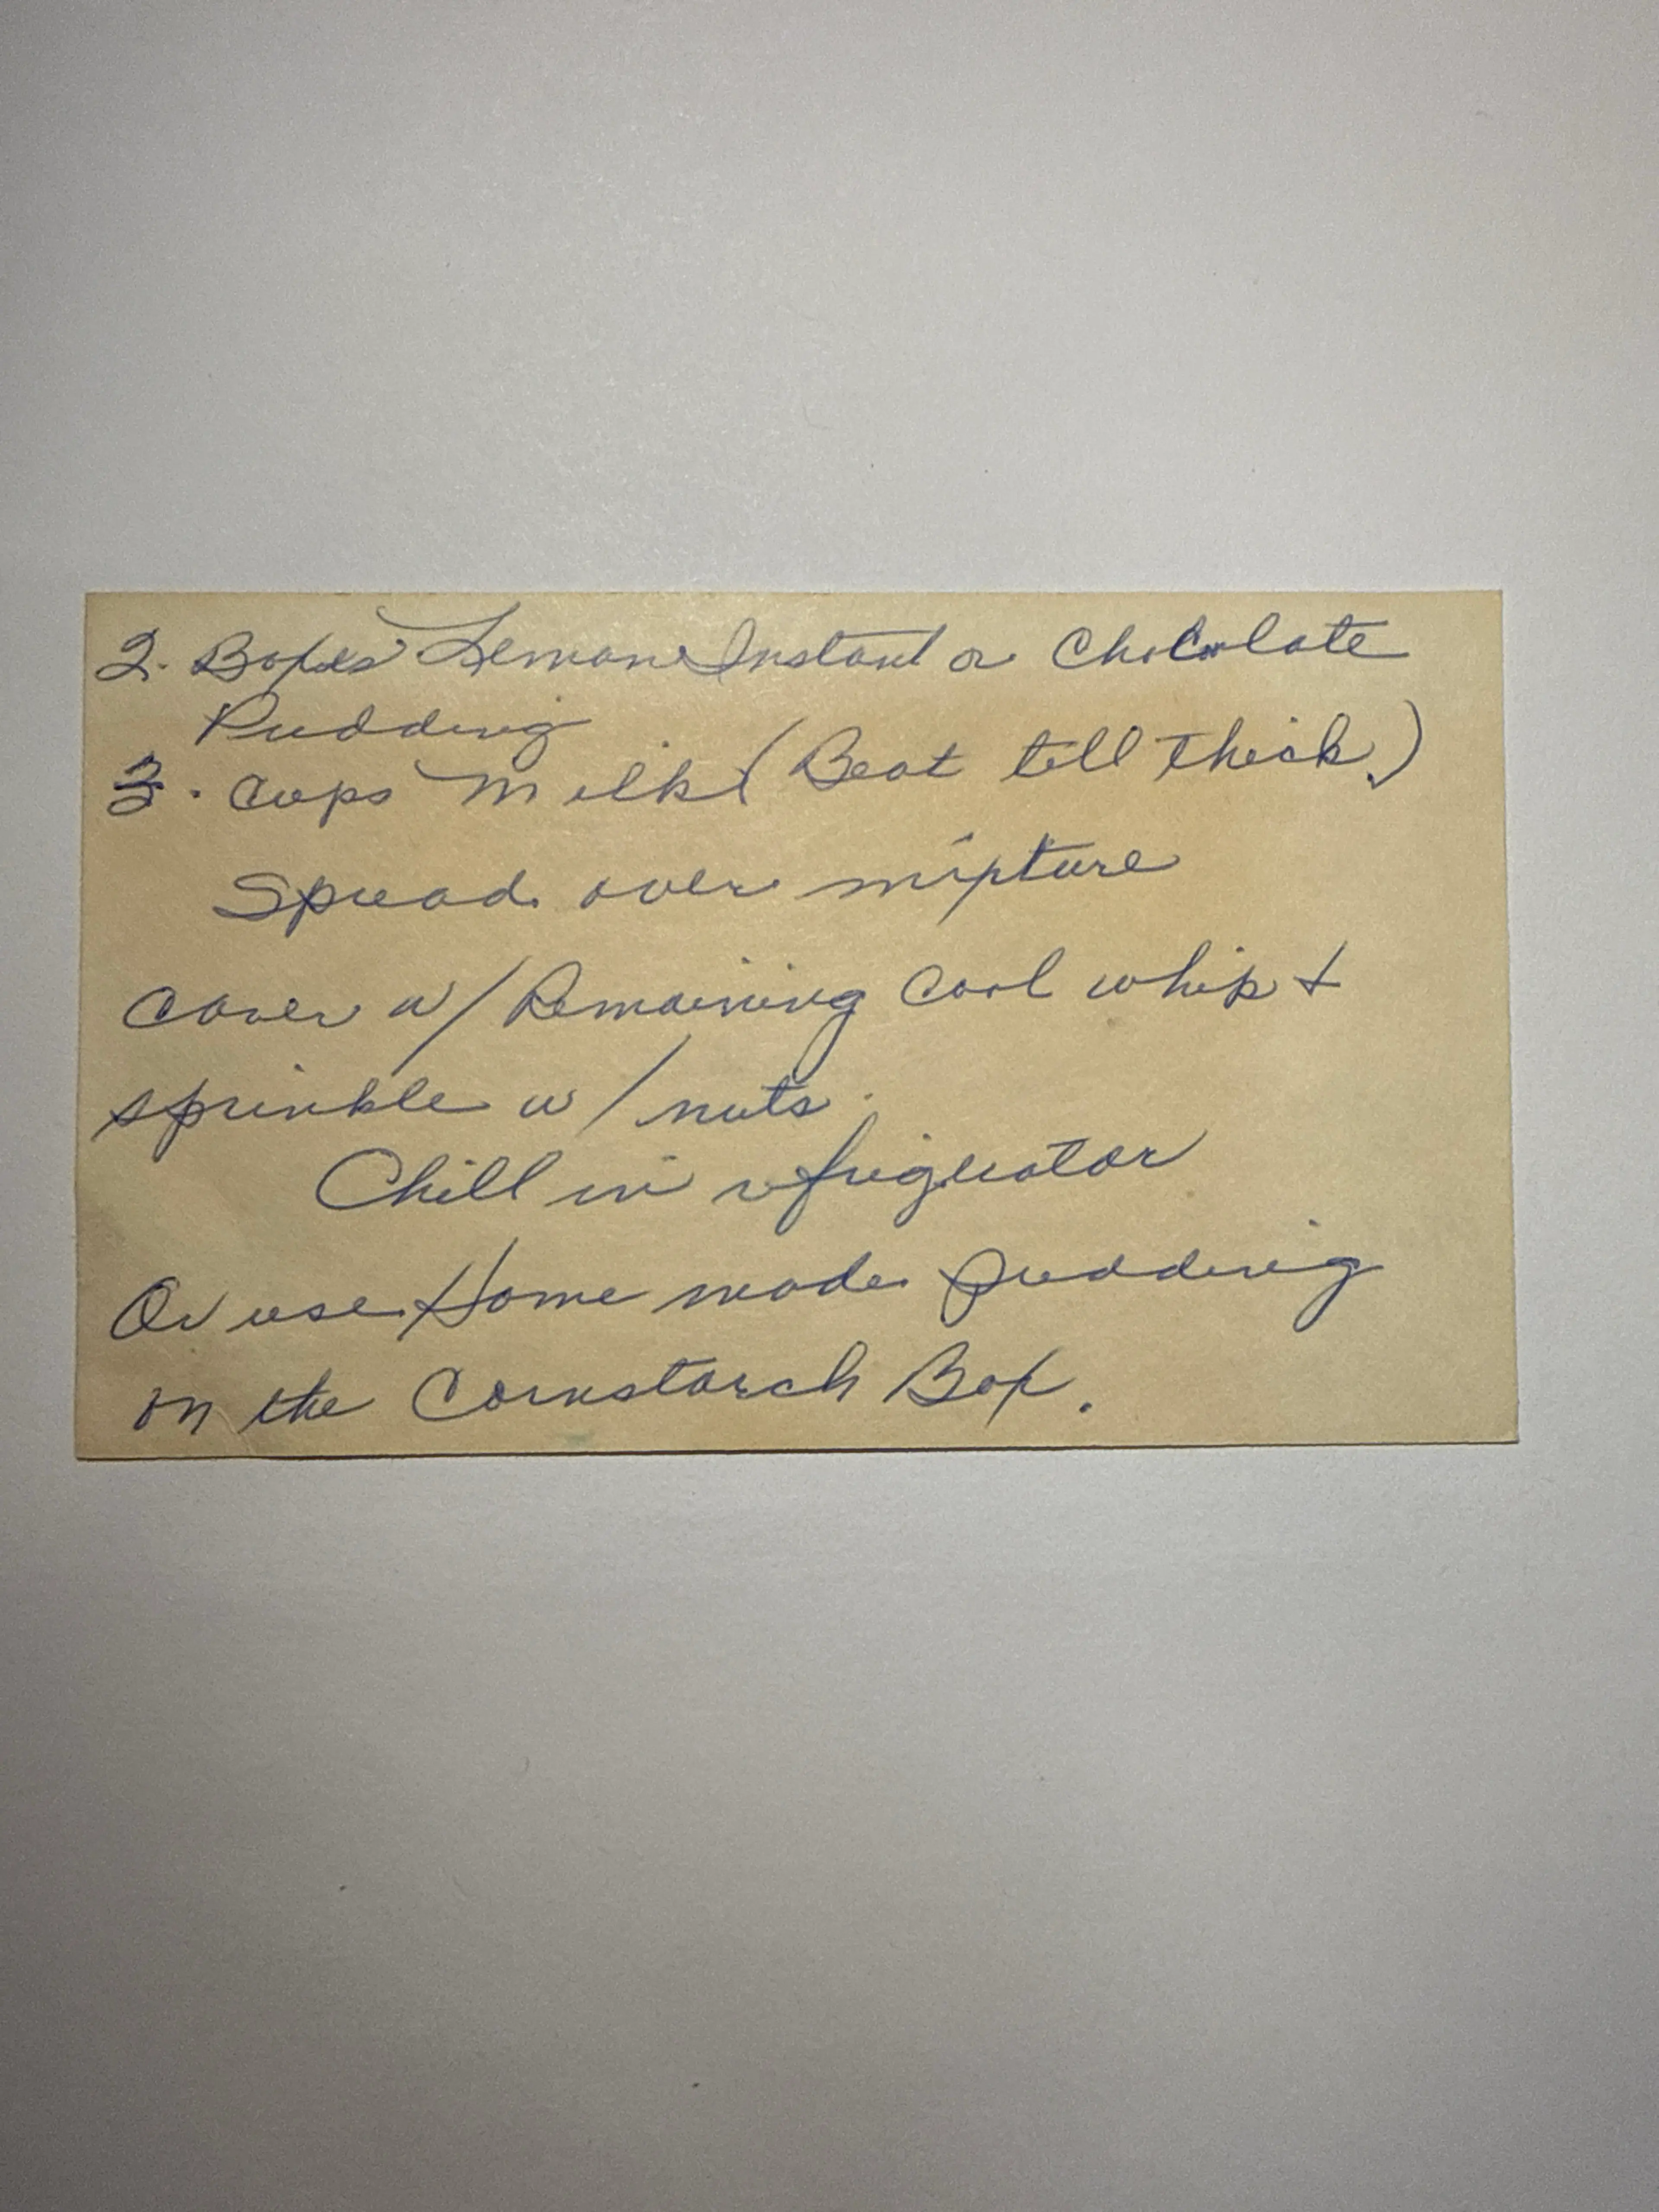 2. Boxes Lemon Instant or Chocolate
Pudding
3. Cups Milk (Beat till thick.)
Spread over mixture
Cover w/ Remaining Cool whip +
sprinkle w/ nuts.
Chill in refrigerator
Or use Home made pudding
on the Cornstarch Box.